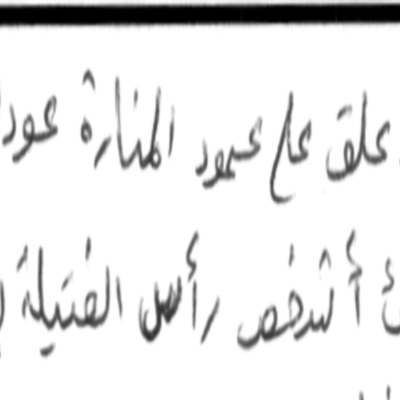 علق على عمود المنارة عود
أشخص رأس الفتيلة